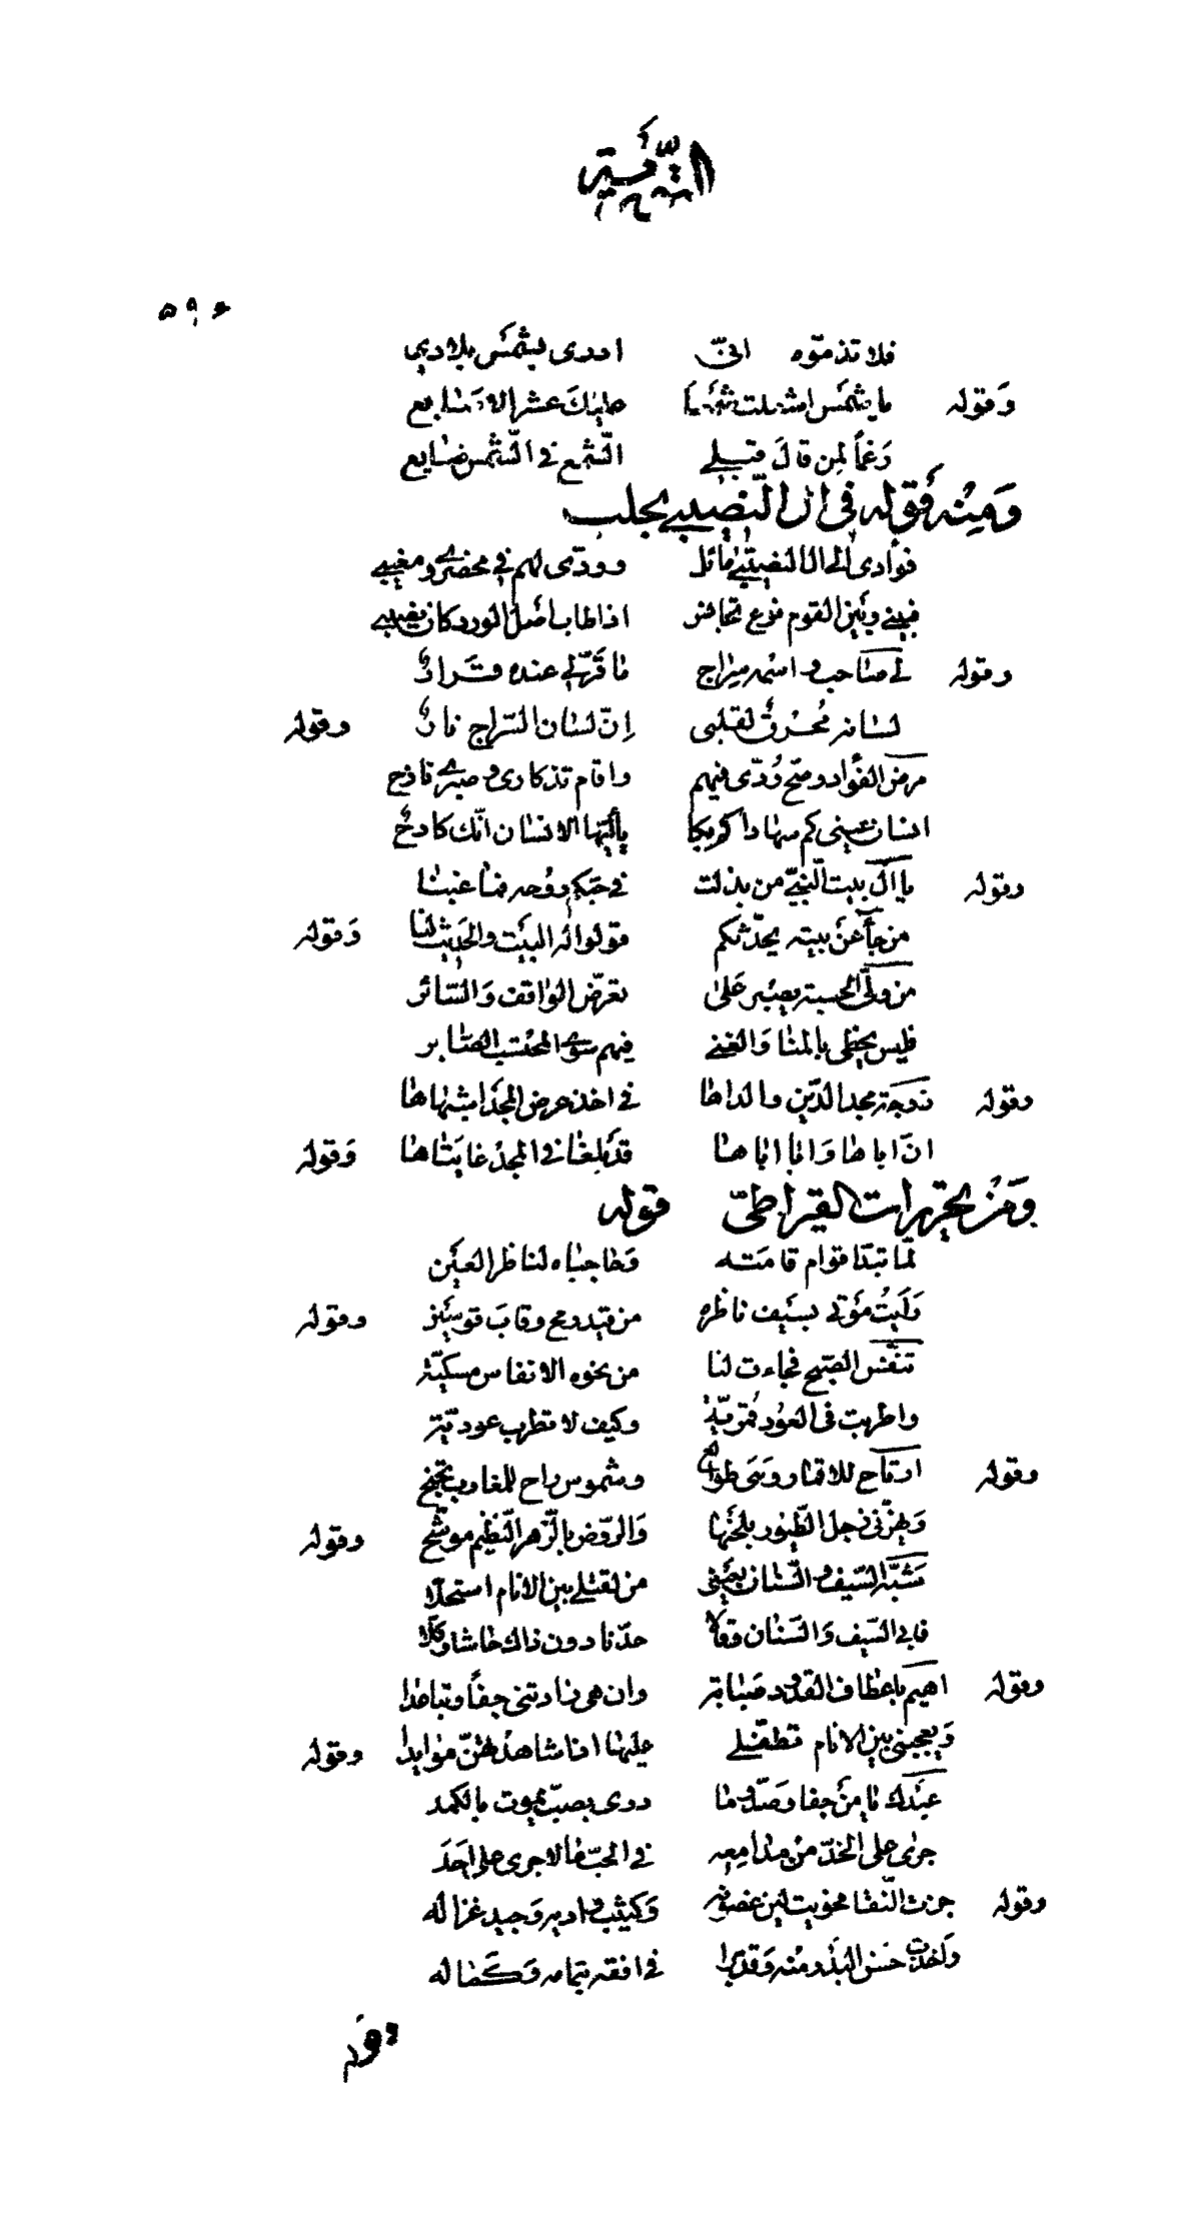 التورية
٥٩٤
فلا تذمّوه انّى ادرى بشمس بلادي
وَقوله يا شمس عليك عشر الاصابع
رَغماً لمن قالَ قبلي الشّمع في الشّمس ضايع
وَمِنْه قَوله في ال النّصيبي بحلب
فوأدى الى ال النصيبيّ مائل وودّى لهم في محضري ومغيبي
فبيني وبين القوم نوع تجانس اذا طاب اصل الورد كان نصيبي
وقوله لي صاحب واسمه سراج ما قرّ لي عنده قرارٌ
لسانه مُحْرق لقلبى اِنّ لسان السّراج نارٌ وقوله
مرض الفؤاد وصحّ وُدّى فيهم واقام تذكارى وصبرى نازح
انسان عينى كم سهادا كم بكا يا أيّها الانسان انّك كادحٌ
وقوله يا آل بيت النّبيّ من بذلت في حبّكم روحه فما غبنا
من جآء عن بيته يحدّثكم قولوا له البيت والحديث لنا وَقوله
من ولّى الحسبة يصبر عَلى تعرّض الواقف وَالسّائر
فليس يحظى بالمنا وَالغنى فيهم سوى المحتسب الصّابر
وقوله زوجة مجد الدّين والداها في اخذ عرض المجد اشبهاها
انّ اباها وَابا اباها قد بلغا في المجد غايتاها وَقوله
وَمَنْ تحريرات القيراطىّ قوله
لمّا تبدّا قوام قامته وَحاجباه لناظر العين
رَأيتُ موْتى بسَيف ناظره من قيد رمح وقابَ قوسَين وقوله
تنفّس الصّبح فجاءت لنا من نحوه الانفاس مسكيّة
واطربت في العوُد قمريّةٌ وكيف لا تطرب عوديّة
وقوله ارتاح للاقمار وَهى طوالع وشموس راح للمغارب تجنح
وَيهزّنى زجل الطّيور بلحنها وَالروّض بالزّهر النّظيم موشّح وقوله
شبّه السّيف والسّنان بعينى من لقتلى بين الانام استحلّا
فابى السّيف وَالسّنان وقالا حدّنا دون ذاك حاشا وكلّا
وقوله اهيم باعطاف القدود صبابة وان هي زادتنى جفاً وتباعدا
وَيعجبنى بين الانام تطفّلى عليها اذا شاهدتهنّ موايدا وقوله
عبدك يا من جفا وصَدّ وما روى بصبّ يموت بالكمد
جرى على الخدّ من مدامعه في الحبّ ما لا جرى على احَد
وقوله جزت النّقا فحويت لين غصونه وَكثيب واديه وَجيد غزاله
وَاخذت حسن البَدْر منه وَقد بدا في افقه بتمامه وَكماله
وقوله